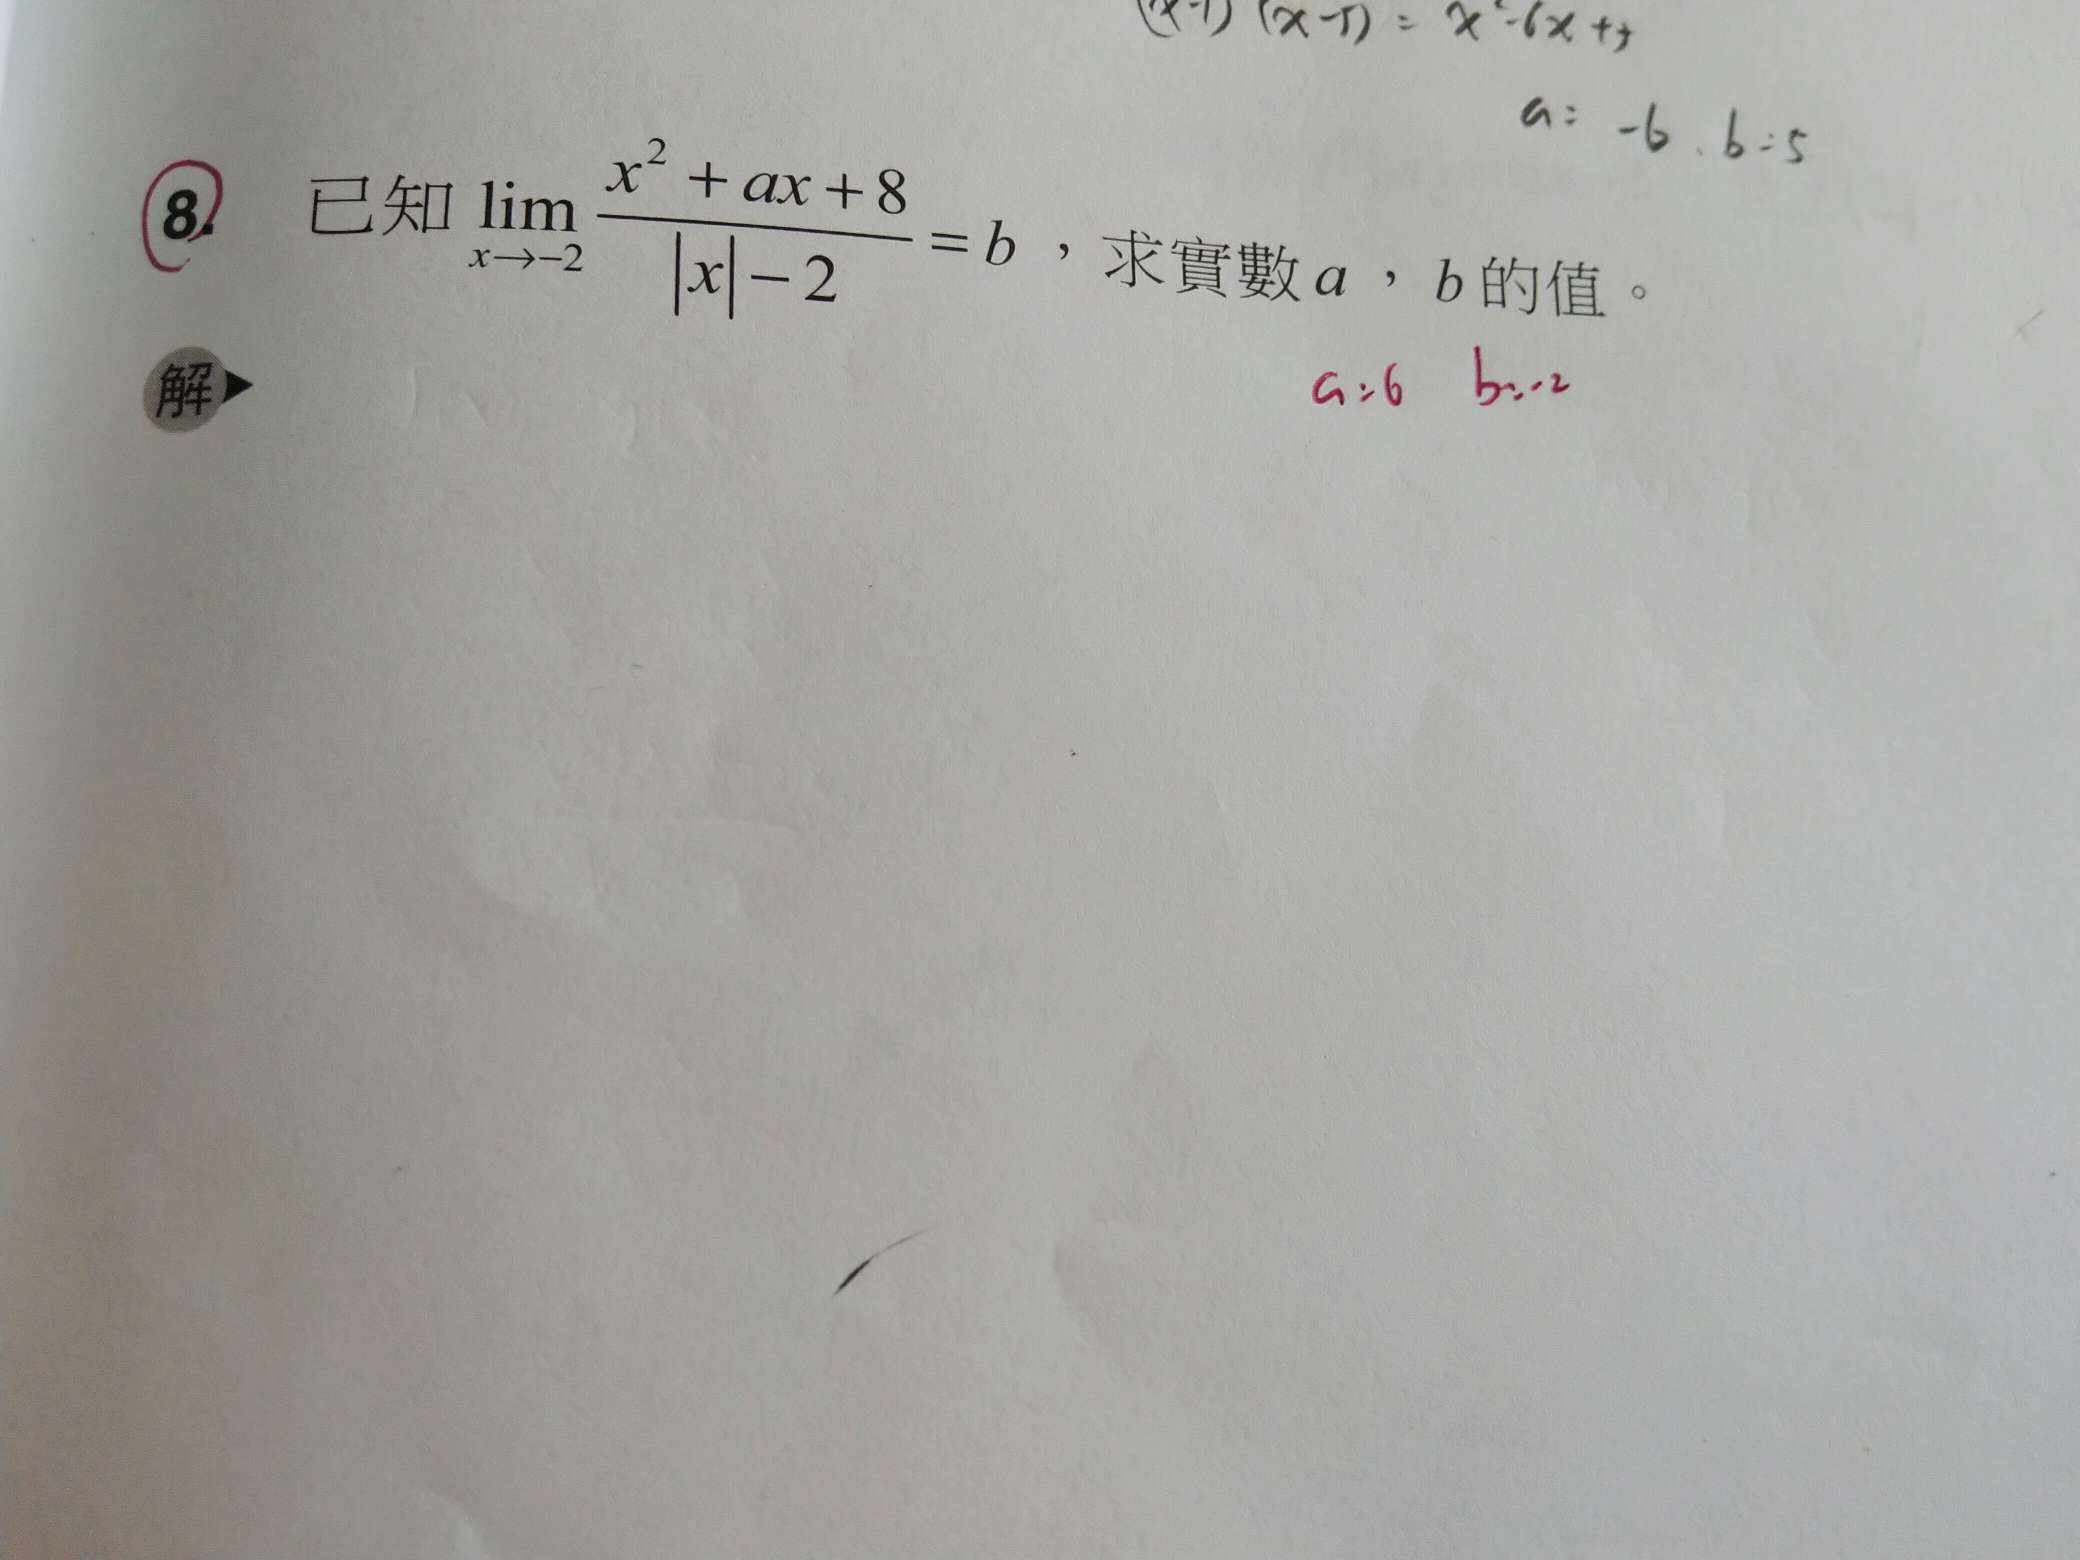 (x-1) (x-5) = x²-6x+5
a= -6 、b=5
8. 已知 lim x→-2 x² + ax + 8 / |x| - 2 = b ，求實數 a ， b 的值。
a=6 b=-2
解▶